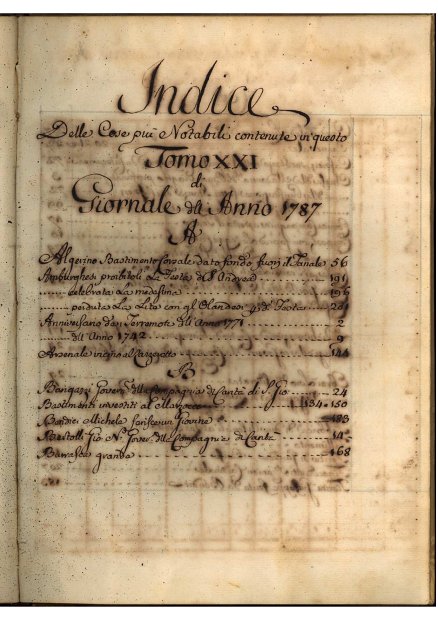 Indice
Delle Cose più Notabili contenute in questo
Tomo XXI
di
Giornale dell Anno 1787
A
Algerino Bastimento Corsale dato fondo fuori il Fanale 56
Amburghesi proibitoli La Festa di S Andrea 191
celebrata La medesima 196
perduta La Lite con gl Olandesi 201
Anniversario dei Terremoti dell Anno 1771 2
dell Anno 1742 9
Arsenale vicino al Lazzeretto 144
B
Governre della Compagnia di Carità di S. Gio 24
Bastimenti investiti al 134 150
Michele Giovine 183
Bastolli Gio Nre Governre della Compagnia di Carità 14
Burrasca grande 168